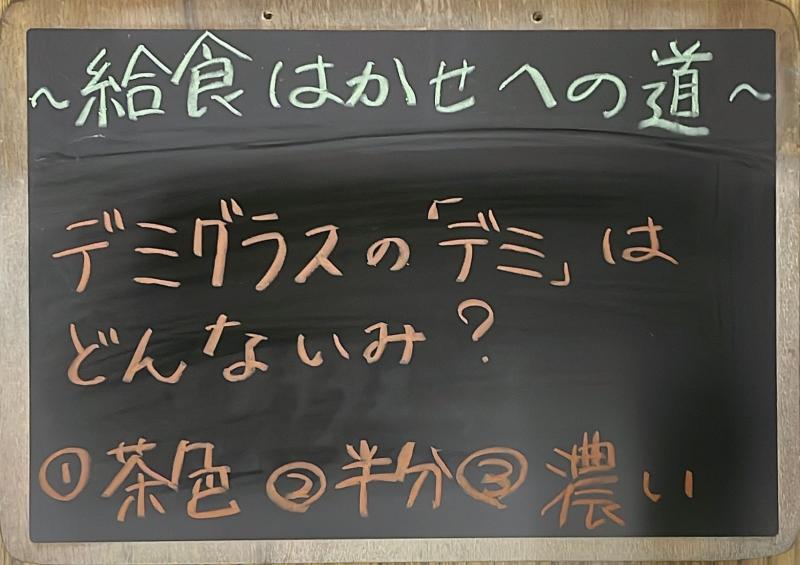 ~給食はかせへの道~
デミグラスの「デミ」は
どんないみ?
①茶色 ②半分 ③濃い